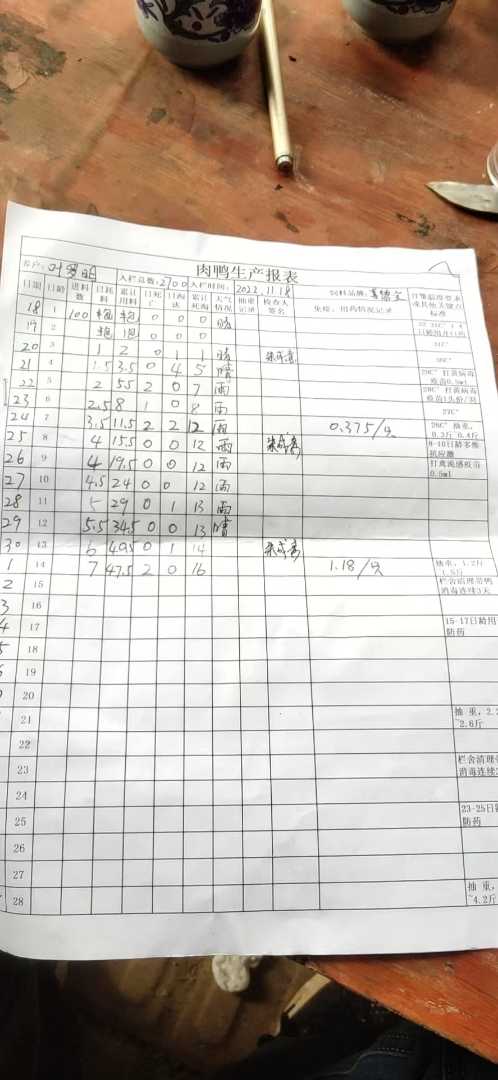 肉鸭生产报表
养户: 入栏总数:2700 入栏时间:2022.11.18 饲料品牌:
日期 日龄 进料数 日耗料 累计用料 日死亡 日淘汰 累计死淘 天气情况 抽重记录 检查人签名 免疫、用药情况记录 日龄温度要求或其他关键点标准
18 1 100 0 0 0 晴
19 2 0 0 0
20 3 1 2 0 1 1 晴 31℃
21 4 1.5 3.5 0 4 5 晴 29℃ 打黄病毒疫苗0.5ml
22 5 2 5.5 2 0 7 雨 28℃ 打黄病毒疫苗1头份/羽
23 6 2.5 8 1 0 8 雨 27℃
24 7 3.5 11.5 2 2 12 雨 0.375/只 26℃ 抽重,0.3斤 0.4斤
25 8 4 15.5 0 0 12 雨 8-10日龄多维抗应激
26 9 4 19.5 0 0 12 雨 打禽流感疫苗0.5ml
27 10 4.5 24 0 0 12 雨
28 11 5 29 0 1 13 雨
29 12 5.5 34.5 0 0 13 晴
30 13 6 40.5 0 1 14
1 14 7 47.5 2 0 16 1.18/只 抽重,1.2斤
2 15 栏舍清理带鸭消毒连续3天
3 16
4 17 15-17日龄用防药
5 18
19
20
21 抽重,2.2~2.6斤
22
23 栏舍清理 消毒连续
24
25 23-25日龄 防药
26
27
28 抽重,~4.2斤